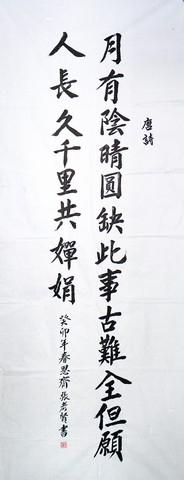 唐詩
月有陰晴圓缺此事古難全但願
人長久千里共嬋娟
癸卯年春 張 書